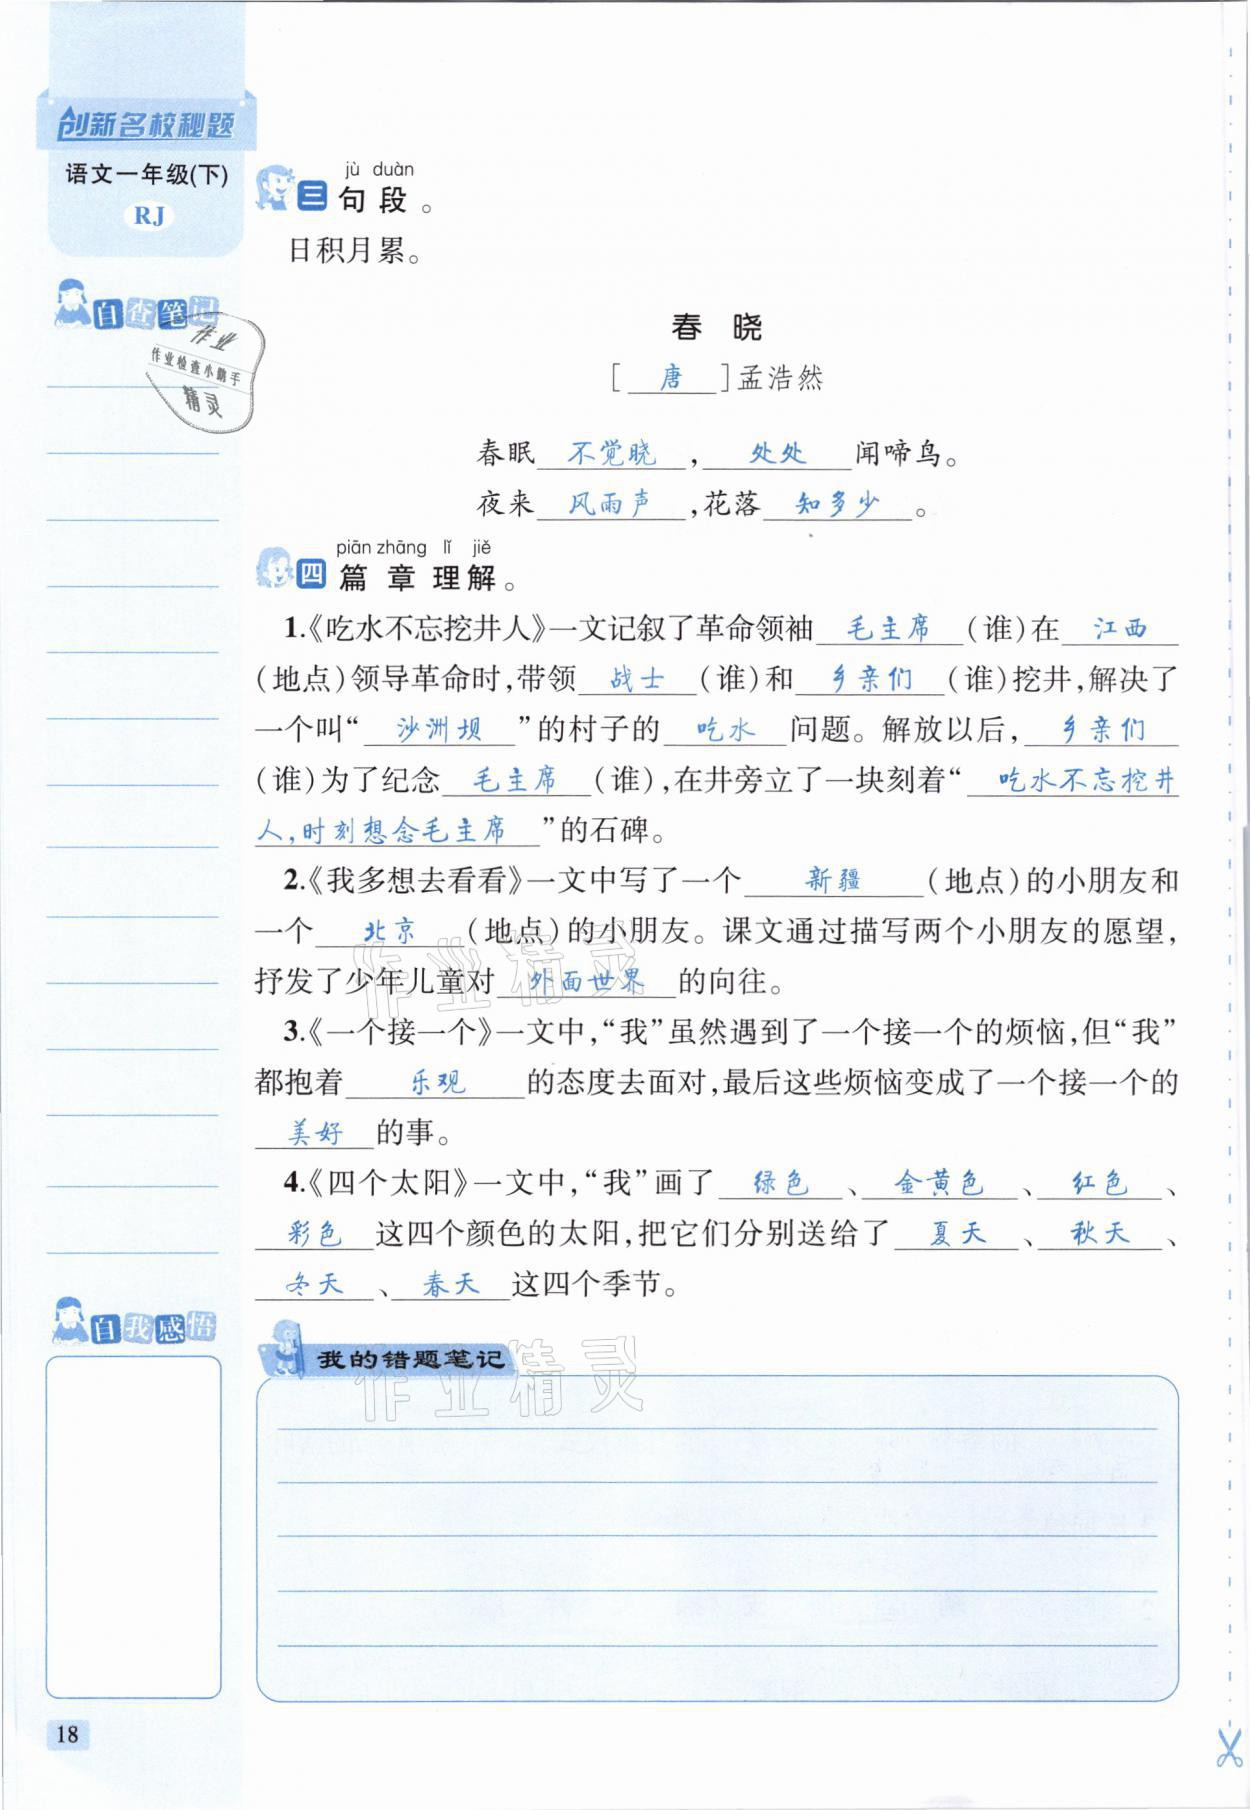 创新名校秘题
语文一年级(下)
RJ
自查笔记
作业
作业检查小鹏手
精灵
jù duàn
三 句段。
日积月累。
春 晓
[ 唐 ]孟浩然
春眠 不觉晓 , 处处 闻啼鸟。
夜来 风雨声 ,花落 知多少 。
piān zhāng lǐ jiě
四 篇章理解。
1.《吃水不忘挖井人》一文记叙了革命领袖 毛主席 (谁)在 江西
(地点)领导革命时,带领 战士 (谁)和 乡亲们 (谁)挖井,解决了
一个叫“ 沙洲坝 ”的村子的 吃水 问题。解放以后, 乡亲们
(谁)为了纪念 毛主席 (谁),在井旁立了一块刻着“ 吃水不忘挖井
人,时刻想念毛主席 ”的石碑。
2.《我多想去看看》一文中写了一个 新疆 (地点)的小朋友和
一个 北京 (地点)的小朋友。课文通过描写两个小朋友的愿望,
抒发了少年儿童对 外面世界 的向往。
3.《一个接一个》一文中,“我”虽然遇到了一个接一个的烦恼,但“我”
都抱着 乐观 的态度去面对,最后这些烦恼变成了一个接一个的
美好 的事。
4.《四个太阳》一文中,“我”画了 绿色 、 金黄色 、 红色 、
彩色 这四个颜色的太阳,把它们分别送给了 夏天 、 秋天 、
冬天 、 春天 这四个季节。
自我感悟
我的错题笔记
作业精灵
作业精灵
18